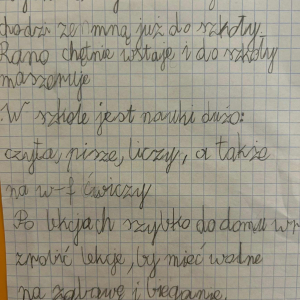 chodzi ze mną już do szkoły.
Rano chętnie wstaje i do szkoły
maszeruje
W szkole jest nauki dużo:
czyta, pisze, liczy, a także
na w-f ćwiczy
Po lekcjach szybko do domu wr
zrobić lekcje, by mieć wolne
na zabawę i bieganie